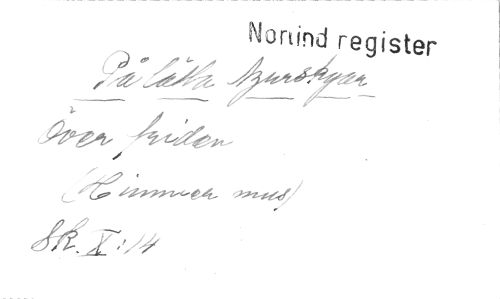 Norlind register
På lätta Azurskyar
över friden
(Himmer mus)
Sk. X:14